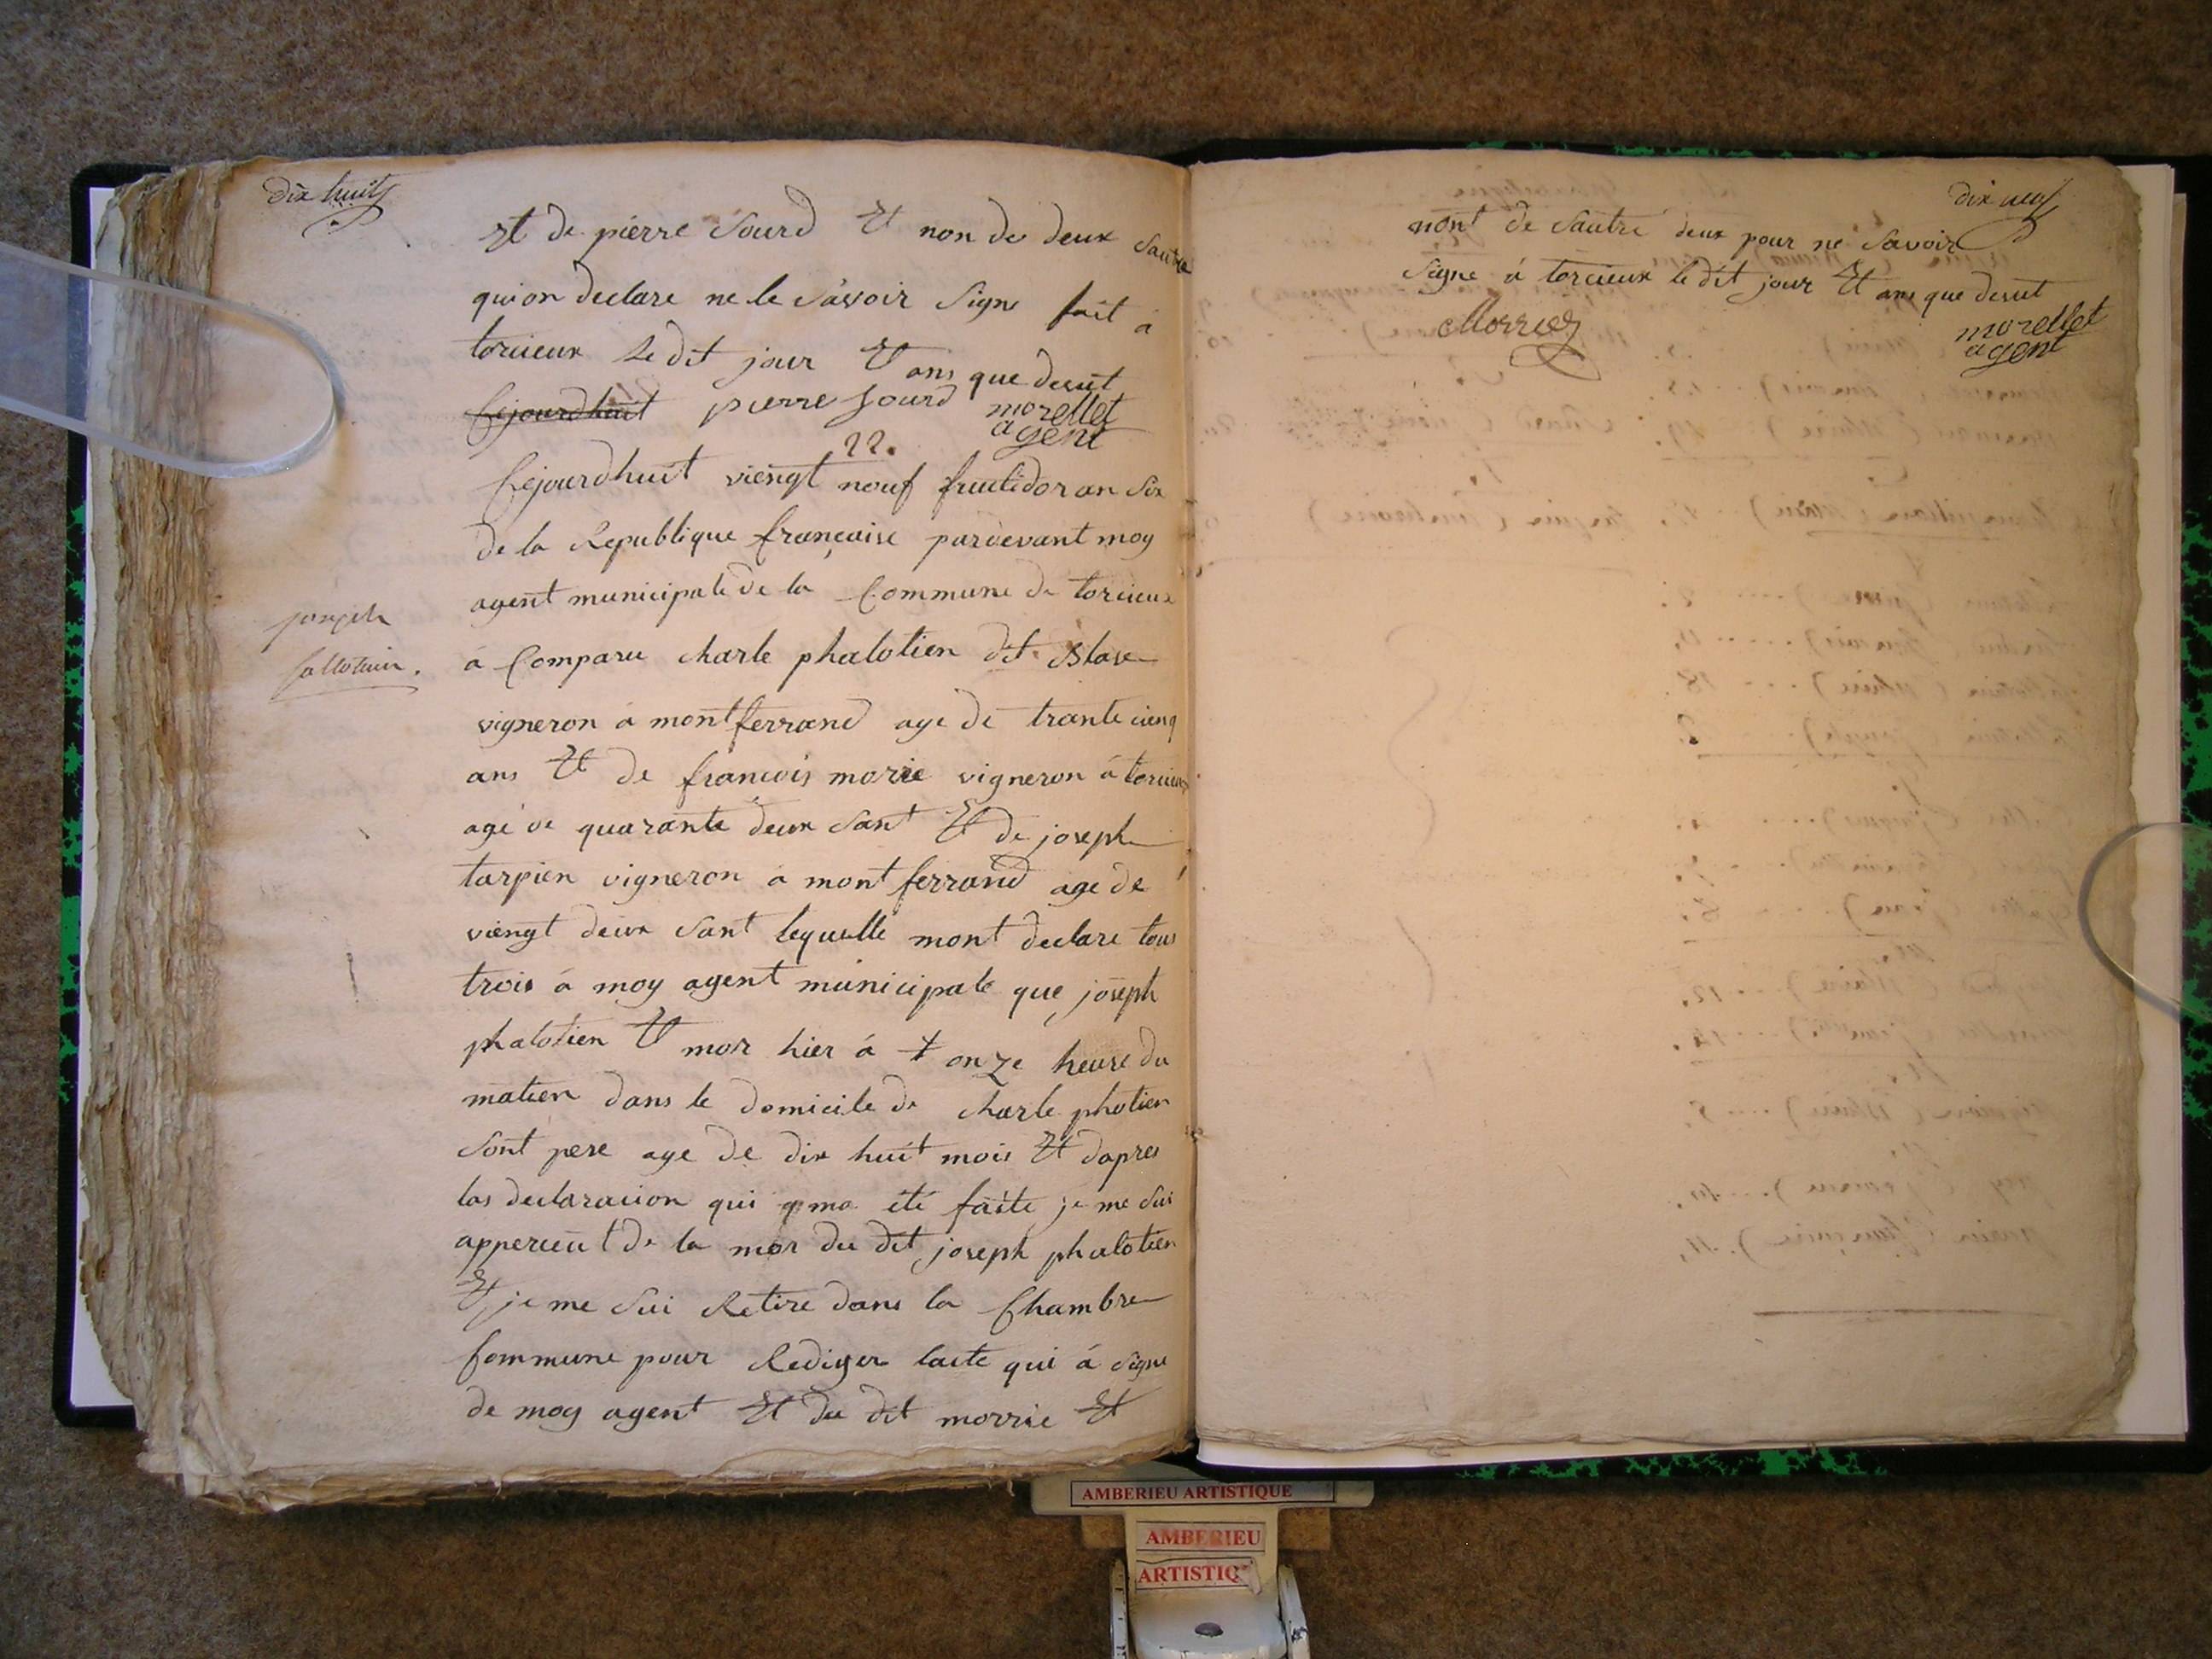 dix huit
Et de pierre Sourd Et non de deux Sautre
qui on declare ne le Savoir Signe fait a
torcieux Le dit jour Et ans que desut
Cejourdhuit pierre Sourd morellet
agent
22.
Cejourdhuit viengt neuf fructidor an Six
de la Republique française pardevant moy
agent municipale de la Commune de torcieux
á Comparu charle phalotien dit Blase
vigneron á montferrand age de trante cienq
ans Et de francois morie vigneron á torcieux
age de quarante deux Sant Et de joseph
tarpien vigneron á montferrand age de
viengt deux Sant lequelle mont declare tous
trois á moy agent municipale que joseph
phalotien Et mor hier á onze heure du
matien dans le domicile de charle photien
Sont pere age de dix huit mois Et dapres
las declaracion qui ma été faite je me Sui
apperceut de la mor du dit joseph phalotien
Et je me Sui Retire dans la Chambre
Commune pour Rediger lacte qui á Signe
de moy agent Et du dit morrie Et
joseph
fallotien.
dix neuf
nont de Sautre deux pour ne Savoir
Signe á torcieux le dit jour Et ans que desut
Morrier
morellet
agent
AMBERIEU ARTISTIQUE
AMBERIEU
ARTISTIQ